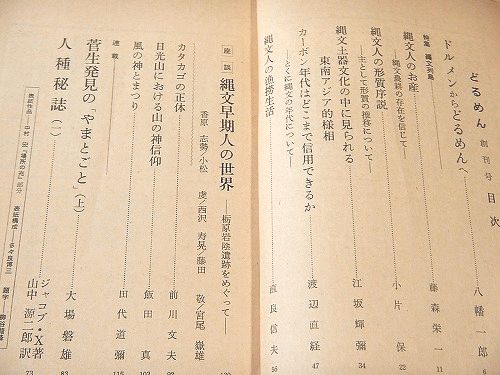 どるめん 創刊号 目次
ドルメンからどるめんへ 八幡一郎 6
特集 縄文
縄文人のお産 藤森栄一 11
―縄文農耕の存在を信じて―
縄文人の形質序説 小片保 22
―主として形質の推移について―
縄文土器文化の中に見られる
東南アジア的様相 江坂輝彌 34
カーボン年代はどこまで信用できるか 渡辺直経 47
―とくに縄文の年代について―
縄文人の漁撈生活 直良信夫 56
座談 縄文早期人の世界 ―栃原岩陰遺跡をめぐって―
香原志勢/小松虔/西沢寿晃/藤田敬/宮尾嶽雄
カタカゴの正体 前川文夫
日光山における山の神信仰 飯田真
風の神とまつり 田代道彌 115
連載
菅生発見の「やまとごと」(上) 大場磐雄 83
人種秘誌(一) ジャコブ・X著
山中源二郎訳 73
表紙作品 中村宏「場所の兆」部分 表紙構成 多々良博三 題字